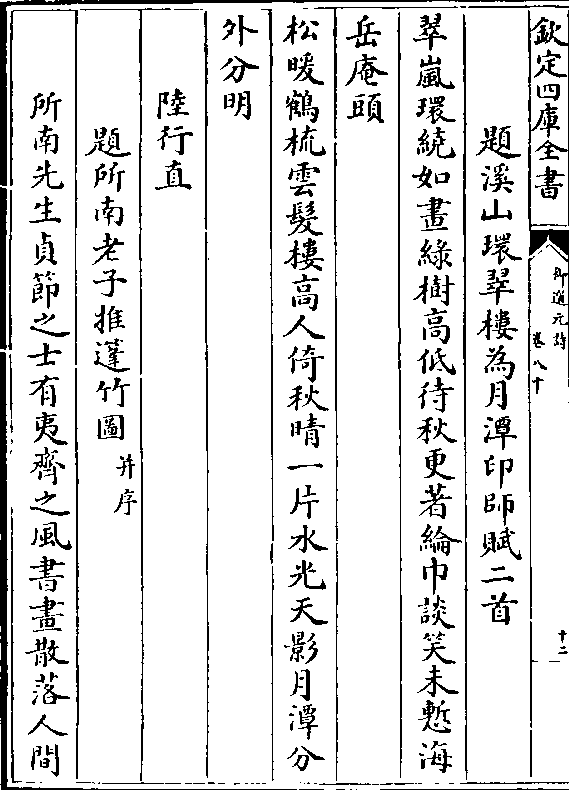 欽定四庫全書
御選元詩
卷八十
十二
題溪山環翠樓為月潭印師賦二首
翠嵐環繞如畫綠樹高低待秋更著綸巾談笑未慙海
岳庵頭
松暖鶴梳雲髮樓高人倚秋晴一片水光天影月潭分
外分明
陸行直
題所南老子推蓬竹圖并序
所南先生貞節之士有夷齊之風書畫散落人間